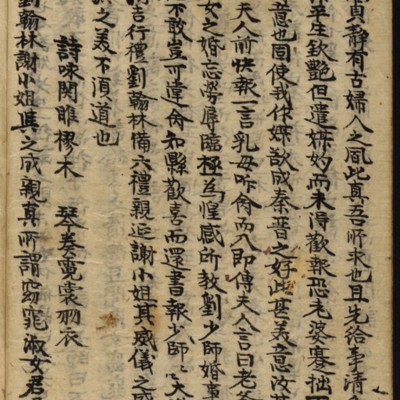 貞靜有古婦人之風此真吾所求也且先給事清
平生欽艶但遣媒妁而未得歡報恐老婆蹇拙
意也固使我作媒欲成秦晋之好此甚美意汝
夫人前快報一言乳母唯命而入即傳夫人言曰老爺
女之婚忘勞辱臨極為惶感所教劉少師婚事
不敢豈可違命知縣歡喜而還書報少師〻大
吉行禮劉翰林備六禮親迎謝小姐其威儀之盛
淑之美不須道也
詩咏関雎樛木 琴奏霓裳羽衣
劉翰林謝小姐與之成親真所謂窈窕淑女君